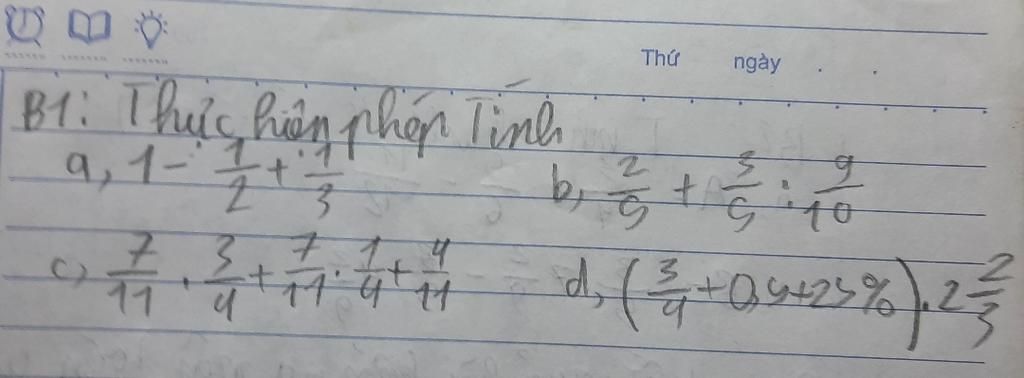 Thứ ngày . .
B1: Thực hiện phép Tính
a, 1 - 1/2 + 1/3 b, 2/5 + 3/5 : 9/10
c, 7/11 . 3/4 + 7/11 . 1/4 + 4/11 d, (3/4 + 0,5 + 25%) . 2 2/3